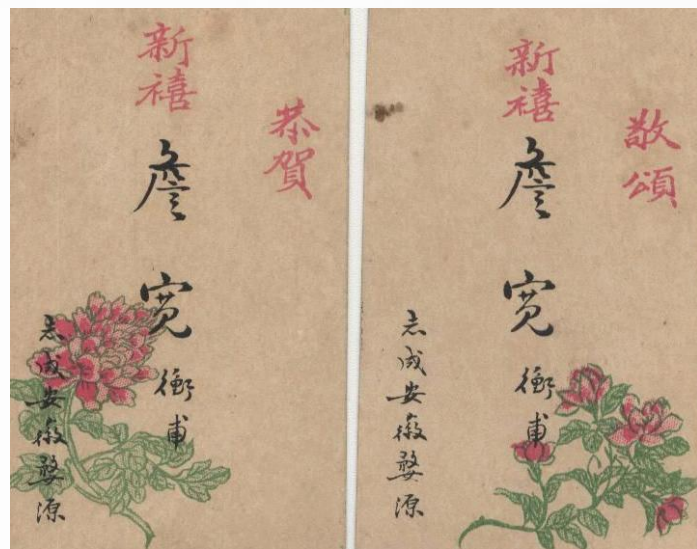 恭賀
新禧
詹寬
衡甫
志成安徽婺源
敬頌
新禧
詹寬
衡甫
志成安徽婺源